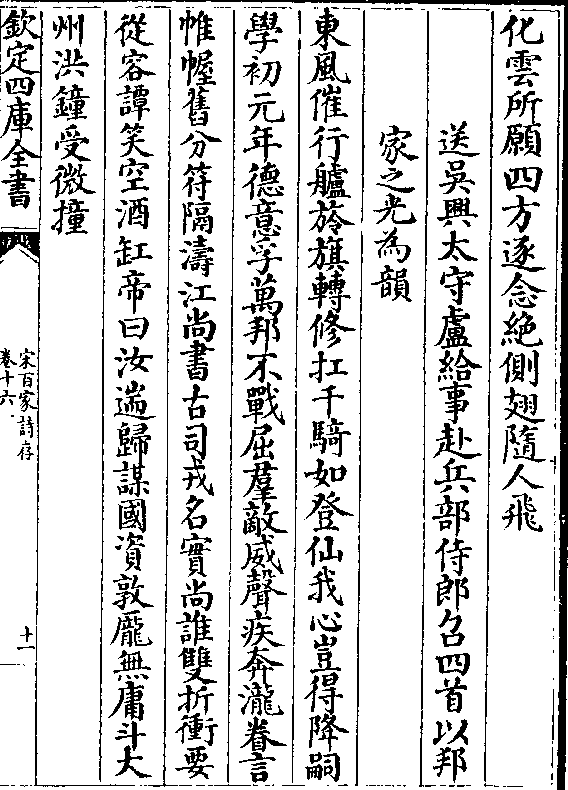 化雲所願四方逐念絶側翅隨人飛
送吳興太守盧給事赴兵部侍郎召四首以邦
家之光為韻
東風催行艫旍旗轉修扛千騎如登仙我心豈得降嗣
學初元年德意孚萬邦不戰屈羣敵威聲疾奔瀧眷言
帷幄舊分符隔濤江尚書古司戎名實尚誰雙折衝要
從容譚笑空酒缸帝曰汝遄歸謀國資敦龐無庸斗大
州洪鐘受微撞
欽定四庫全書
宋百家詩存
卷十六
十一